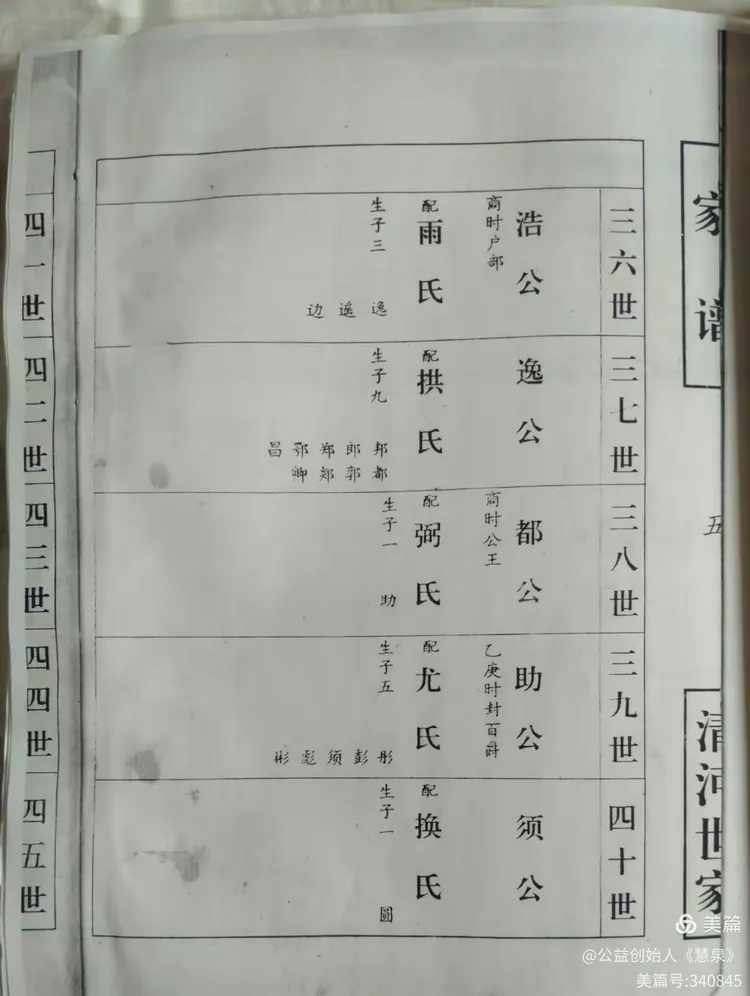 家谱
五
清河世家
三六世
浩公
商时户部
配雨氏
生子三
逸
遥
边
三七世
逸公
配拱氏
生子九
邦都
郎郭
郑郏
鄂卿
昌
三八世
都公
商时公王
配弼氏
生子一
助
三九世
助公
乙庚时封百爵
配尤氏
生子五
彤
彭
须
彪
彬
四十世
须公
配换氏
生子一
圆
四一世
四二世
四三世
四四世
四五世
美篇
@公益创始人《慧泉》
美篇号:340845